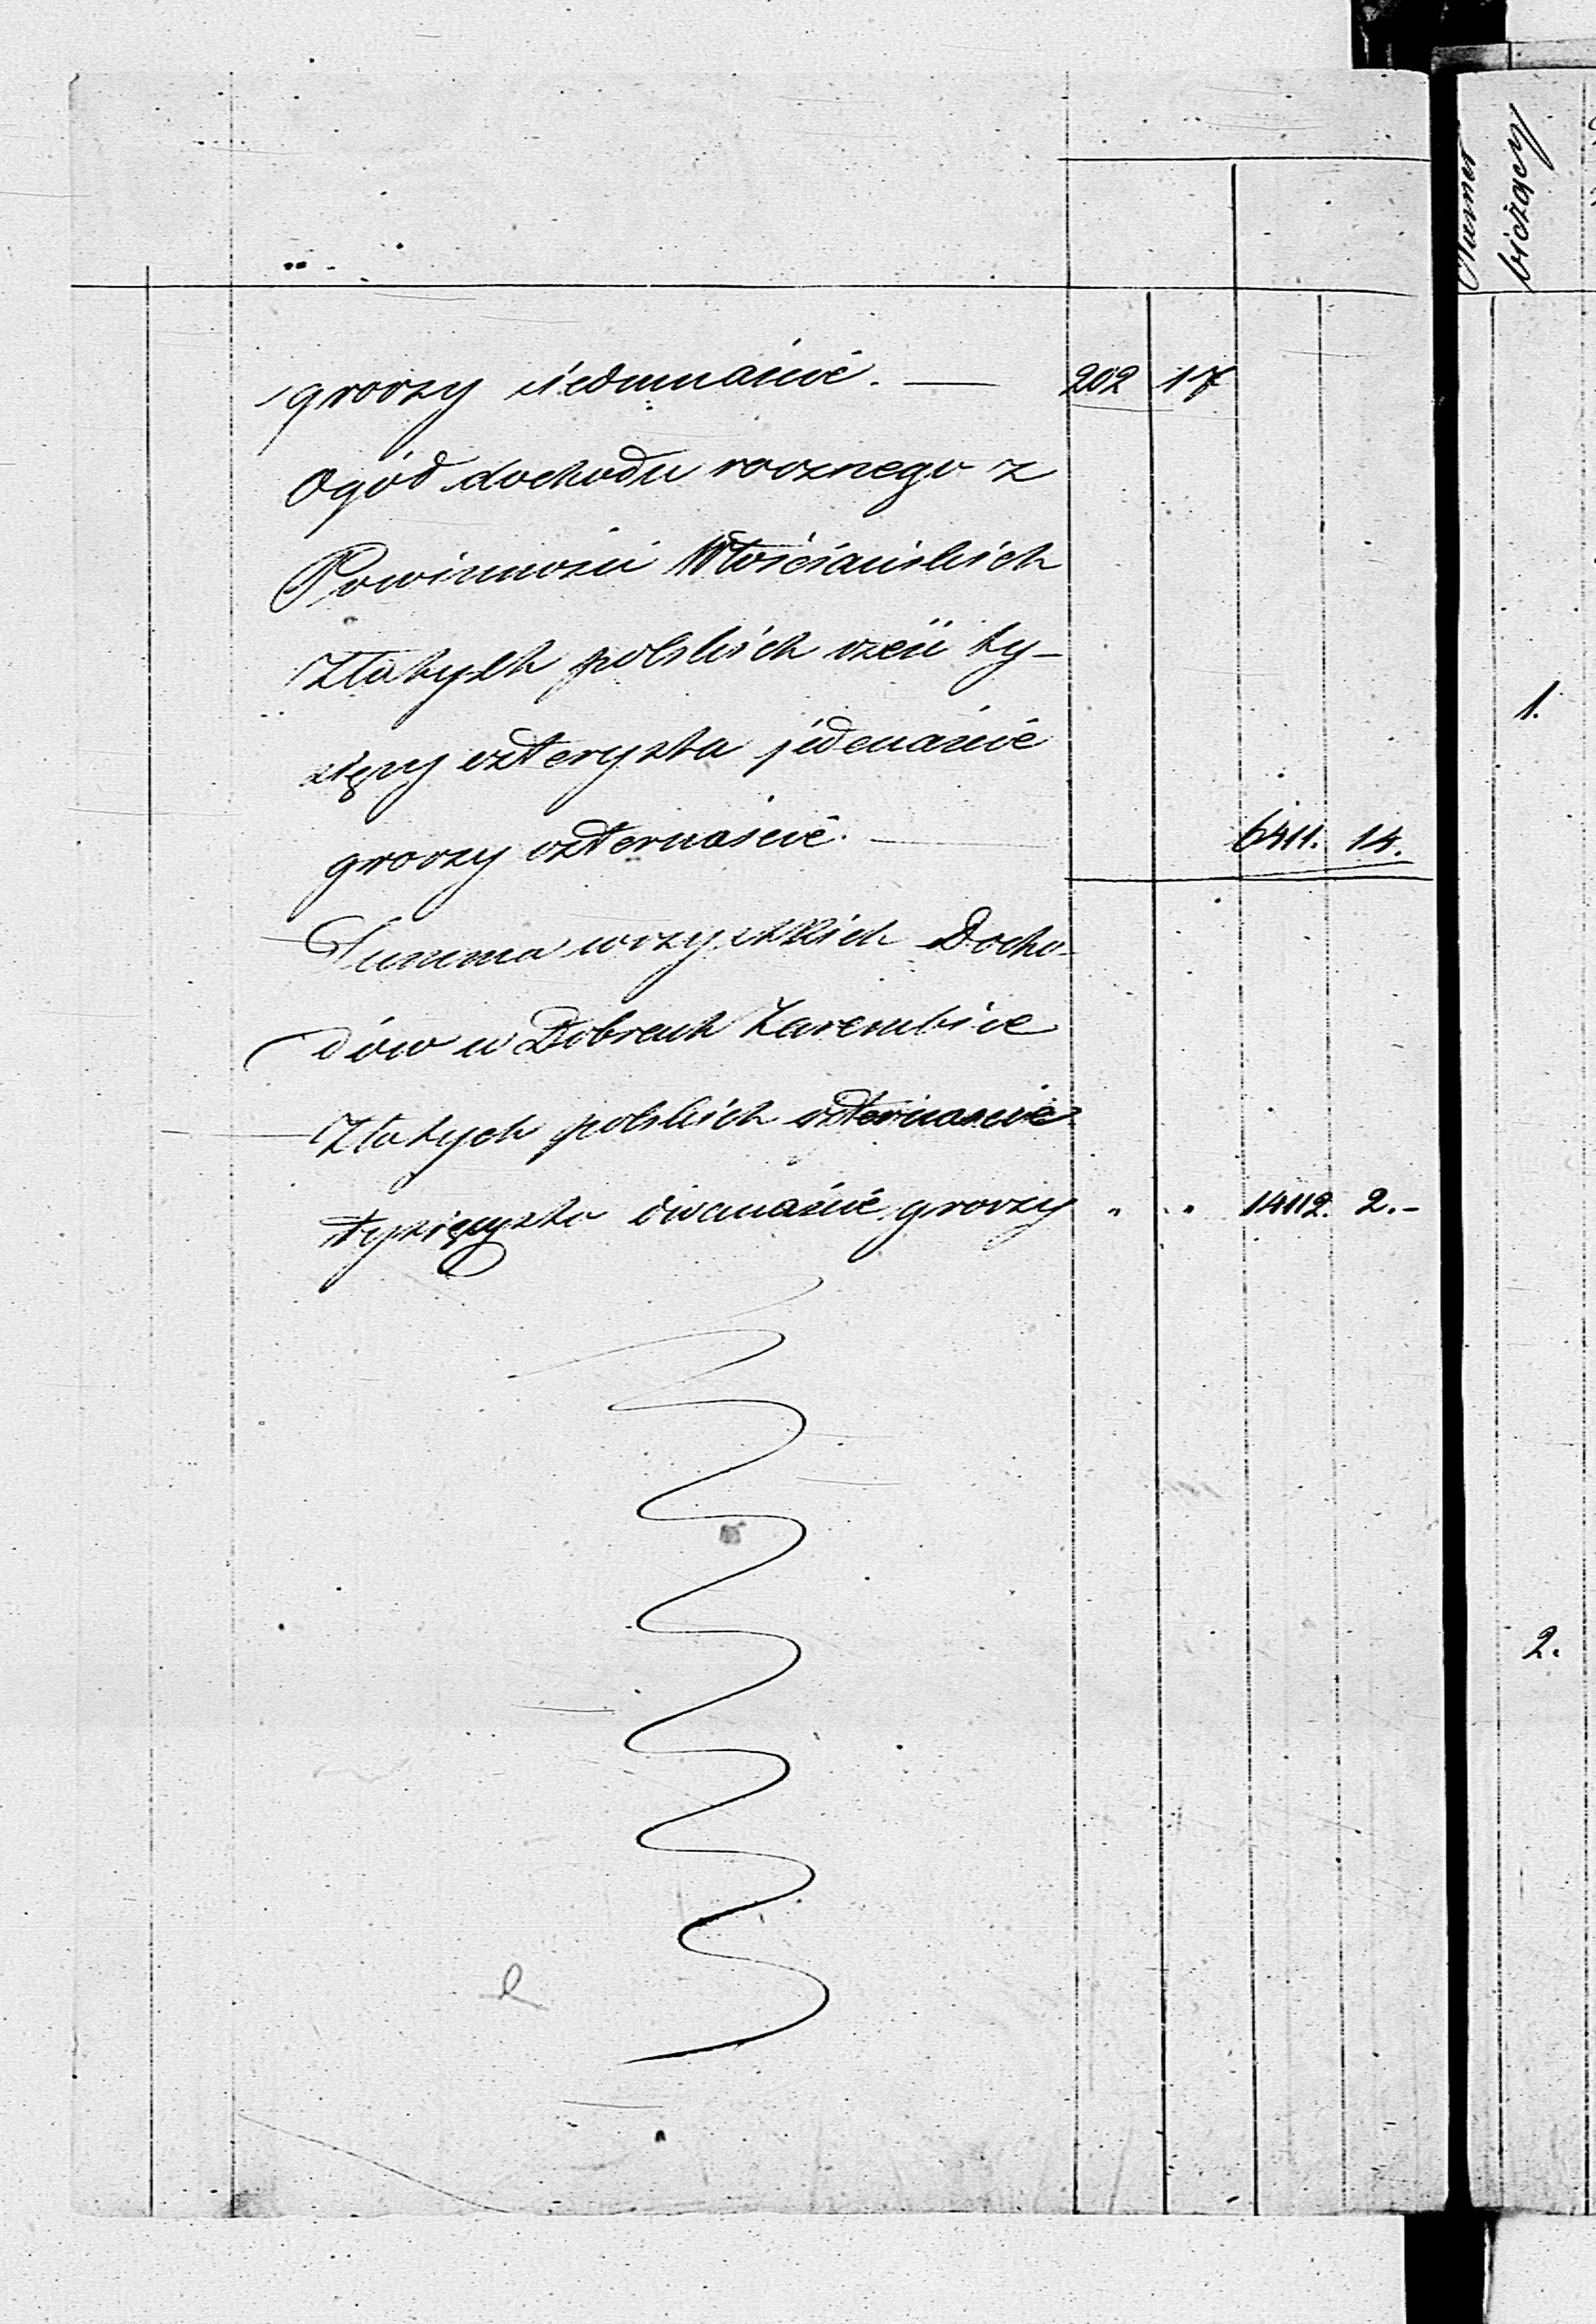 groszy siedmnaście. — 202 17
Ogół dochodu rocznego z
Powinności Włościańskich
Złotych polskich sześć ty-
sięcy czterysta jedenaście
groszy czternaście. — 6411. 14.
Summa wszystkich Docho-
dów w Dobrach Zarembice
Złotych polskich czternaście
tysięcy sto dwanaście groszy " " 14112. 2.-
Numer
bieżący
1.
2.